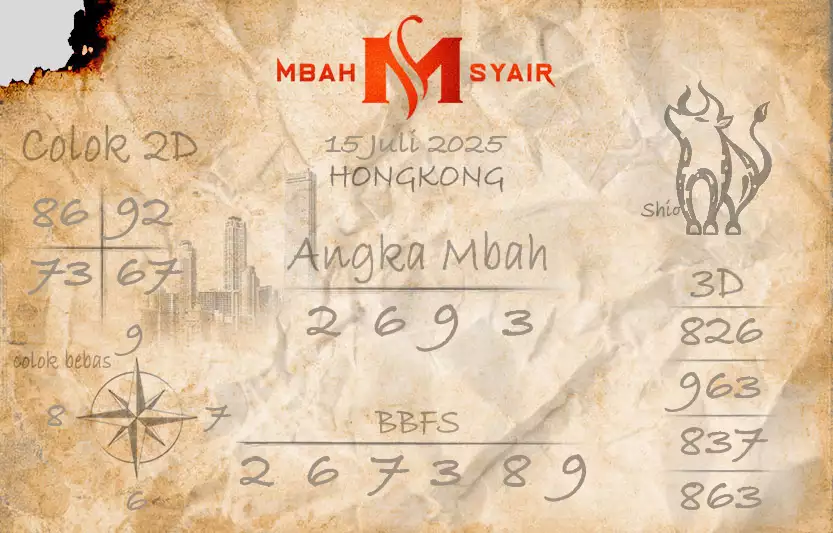 MBAH M SYAIR
15 Juli 2025
HONGKONG
Colok 2D
86 92
73 67
Shio
Angka Mbah
2 6 9 3
3D
826
963
837
863
colok bebas
9
8 7
6
BBFS
2 6 7 3 8 9